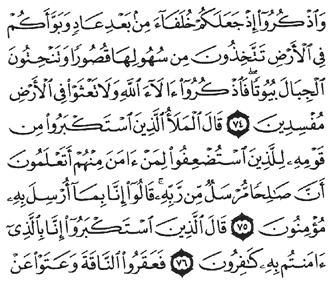 وَاذْكُرُوا إِذْ جَعَلَكُمْ خُلَفَاءَ مِنْ بَعْدِ عَادٍ وَبَوَّأَكُمْ
فِي الْأَرْضِ تَتَّخِذُونَ مِنْ سُهُولِهَا قُصُورًا وَتَنْحِتُونَ
الْجِبَالَ بُيُوتًا ۖ فَاذْكُرُوا ءَالَاءَ اللَّهِ وَلَا تَعْثَوْا فِي الْأَرْضِ
مُفْسِدِينَ ﴿٧٤﴾ قَالَ الْمَلَأُ الَّذِينَ اسْتَكْبَرُوا مِنْ
قَوْمِهِ لِلَّذِينَ اسْتُضْعِفُوا لِمَنْ ءَامَنَ مِنْهُمْ أَتَعْلَمُونَ
أَنَّ صَالِحًا مُرْسَلٌ مِنْ رَبِّهِ ۚ قَالُوا إِنَّا بِمَا أُرْسِلَ بِهِ
مُؤْمِنُونَ ﴿٧٥﴾ قَالَ الَّذِينَ اسْتَكْبَرُوا إِنَّا بِالَّذِي
ءَامَنْتُمْ بِهِ كَافِرُونَ ﴿٧٦﴾ فَعَقَرُوا النَّاقَةَ وَعَتَوْا عَنْ